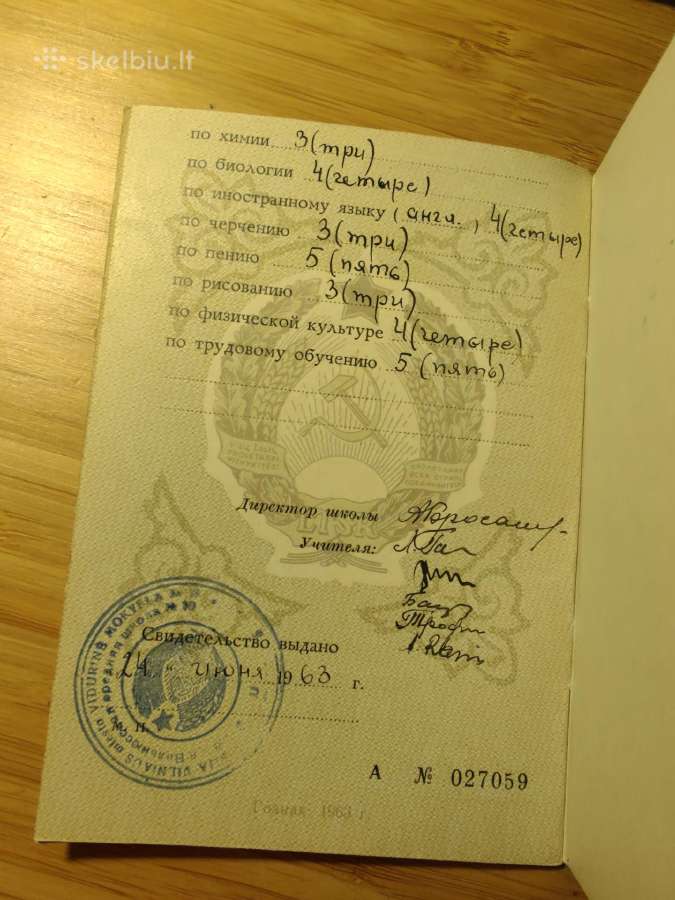 skelbiu.lt
по химии 3 (три)
по биологии 4 (четыре)
по иностранному языку (англ.) 4 (четыре)
по черчению 3 (три)
по пению 5 (пять)
по рисованию 3 (три)
по физической культуре 4 (четыре)
по трудовому обучению 5 (пять)
LTSR
Директор школы
Учителя:
Свидетельство выдано
24 " июня 1963 г.
VILNIAUS miesto VIDURINĖ MOKYKLA
средняя школа №
А № 027059
Гознак. 1963 г.